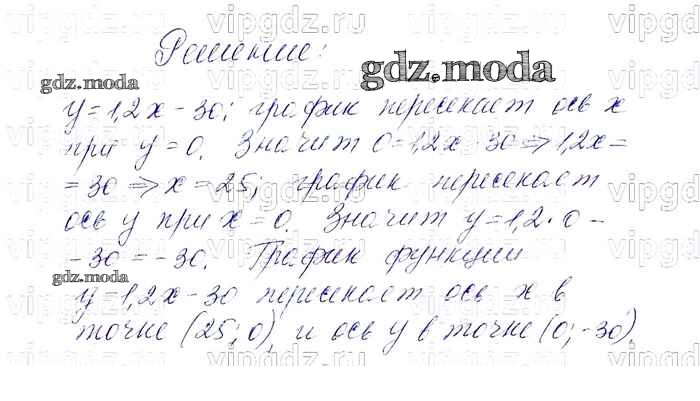 vipgdz.ru vipgdz.ru vipgdz.ru vipgdz
Решение:
gdz.moda
gdz.moda
y=1,2x-30; график пересекает ось x
при y=0. Значит 0=1,2x-30=>1,2x=
=30=>x=25; график пересекает
ось y при x=0. Значит y=1,2·0-
-30=-30. График функции
gdz.moda
y=1,2x-30 пересекает ось x в
точке (25;0) и ось y в точке (0;-30).
vipgdz.ru vipgdz.ru vipgdz.ru vipgdz